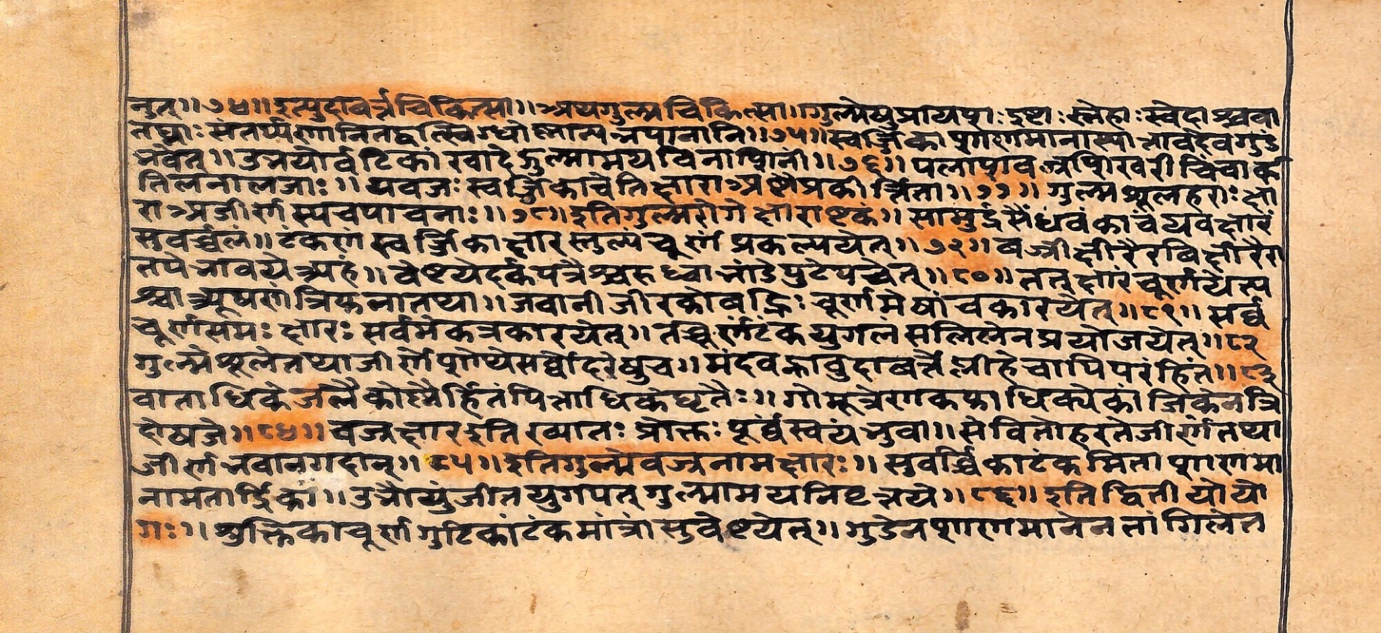 नुत्॥७४॥इत्युदावर्त्तचिकित्सा॥अथगुल्मचिकित्सा॥गुल्मेषुप्रायशः इष्टाः स्नेहाः स्वेदाश्चवा
तघ्नाः संतर्प्पणानितद्वत्स्निग्धोष्णान्यन्नपानानि॥७५॥स्वर्ज्जिकाशाणमानास्या त्तावदेवगुडं
भवेत्॥उभयोर्वटिकां खादेद्गुल्मामयविनाशिनी॥७६॥ पलाशवज्रशिखरीचिंचार्क
तिलनालजाः॥ यवजः स्वर्जिकाचेतिक्षाराऽष्टौप्रकीर्त्तिता॥७७॥ गुल्मशूलहराः क्षा
राऽजीर्णस्यचपाचनाः॥७८॥इतिगुल्मरोगेक्षाराष्टकं॥ सामुद्रं सैंधवं काचं यवक्षारं
सुवर्च्चलं॥टंकणं स्वर्ज्जिकाक्षारस्तुल्यं चूर्णं प्रकल्पयेत्॥७९॥वज्रीक्षीरैरविक्षीरैरा
तपेभावयेत्र्यहं॥ वेष्टयेदर्कपत्रैश्चरुध्वाभांडेपुटेपचेत्॥८०॥ तत् क्षारं चूर्णयेत्प
श्चात्र्यूषणं त्रिफलातथा॥ जवानीजीरकोवह्निः चूर्णमेषांचकारयेत्॥८१॥ सर्व्व
चूर्णसमः क्षारः सर्वमेकत्रकारयेत्॥ तच्चूर्णंटंकयुगलं सलिलेनप्रयोजयेत्॥८२
गुल्मेशूलेतथाजीर्णेशोथेसर्व्वोदरेषुच॥ मंदेवह्नावुदावर्त्तेप्लीहेचापिपरंहितं॥८३
वाताधिकेजलैः कोष्णैर्हितंपित्ताधिकेघृतैः॥ गोमूत्रेणकफाधिक्येकांजिकेनत्रि
दोषजे॥८४॥ वज्रक्षारइतिख्यातः प्रोक्तः पूर्व्वंस्वयंभुवा॥ सेवितोहरतेजीर्णंतथा
जीर्णभवान्गदान्॥८५॥इतिगुल्मेवज्रनामक्षारः॥ सुवर्च्चिकाटंकमिताशाणमा
नामतार्द्रिका॥उभौयुंजीतयुगपत् गुल्मामयनिवृत्तये॥८६॥इतिद्वितीयोयो
गः॥ शुक्तिकाचूर्णगुटिकांटंकमात्रां सुवेष्टयेत्॥ गुडेनशाणमानेनतांगिलेत